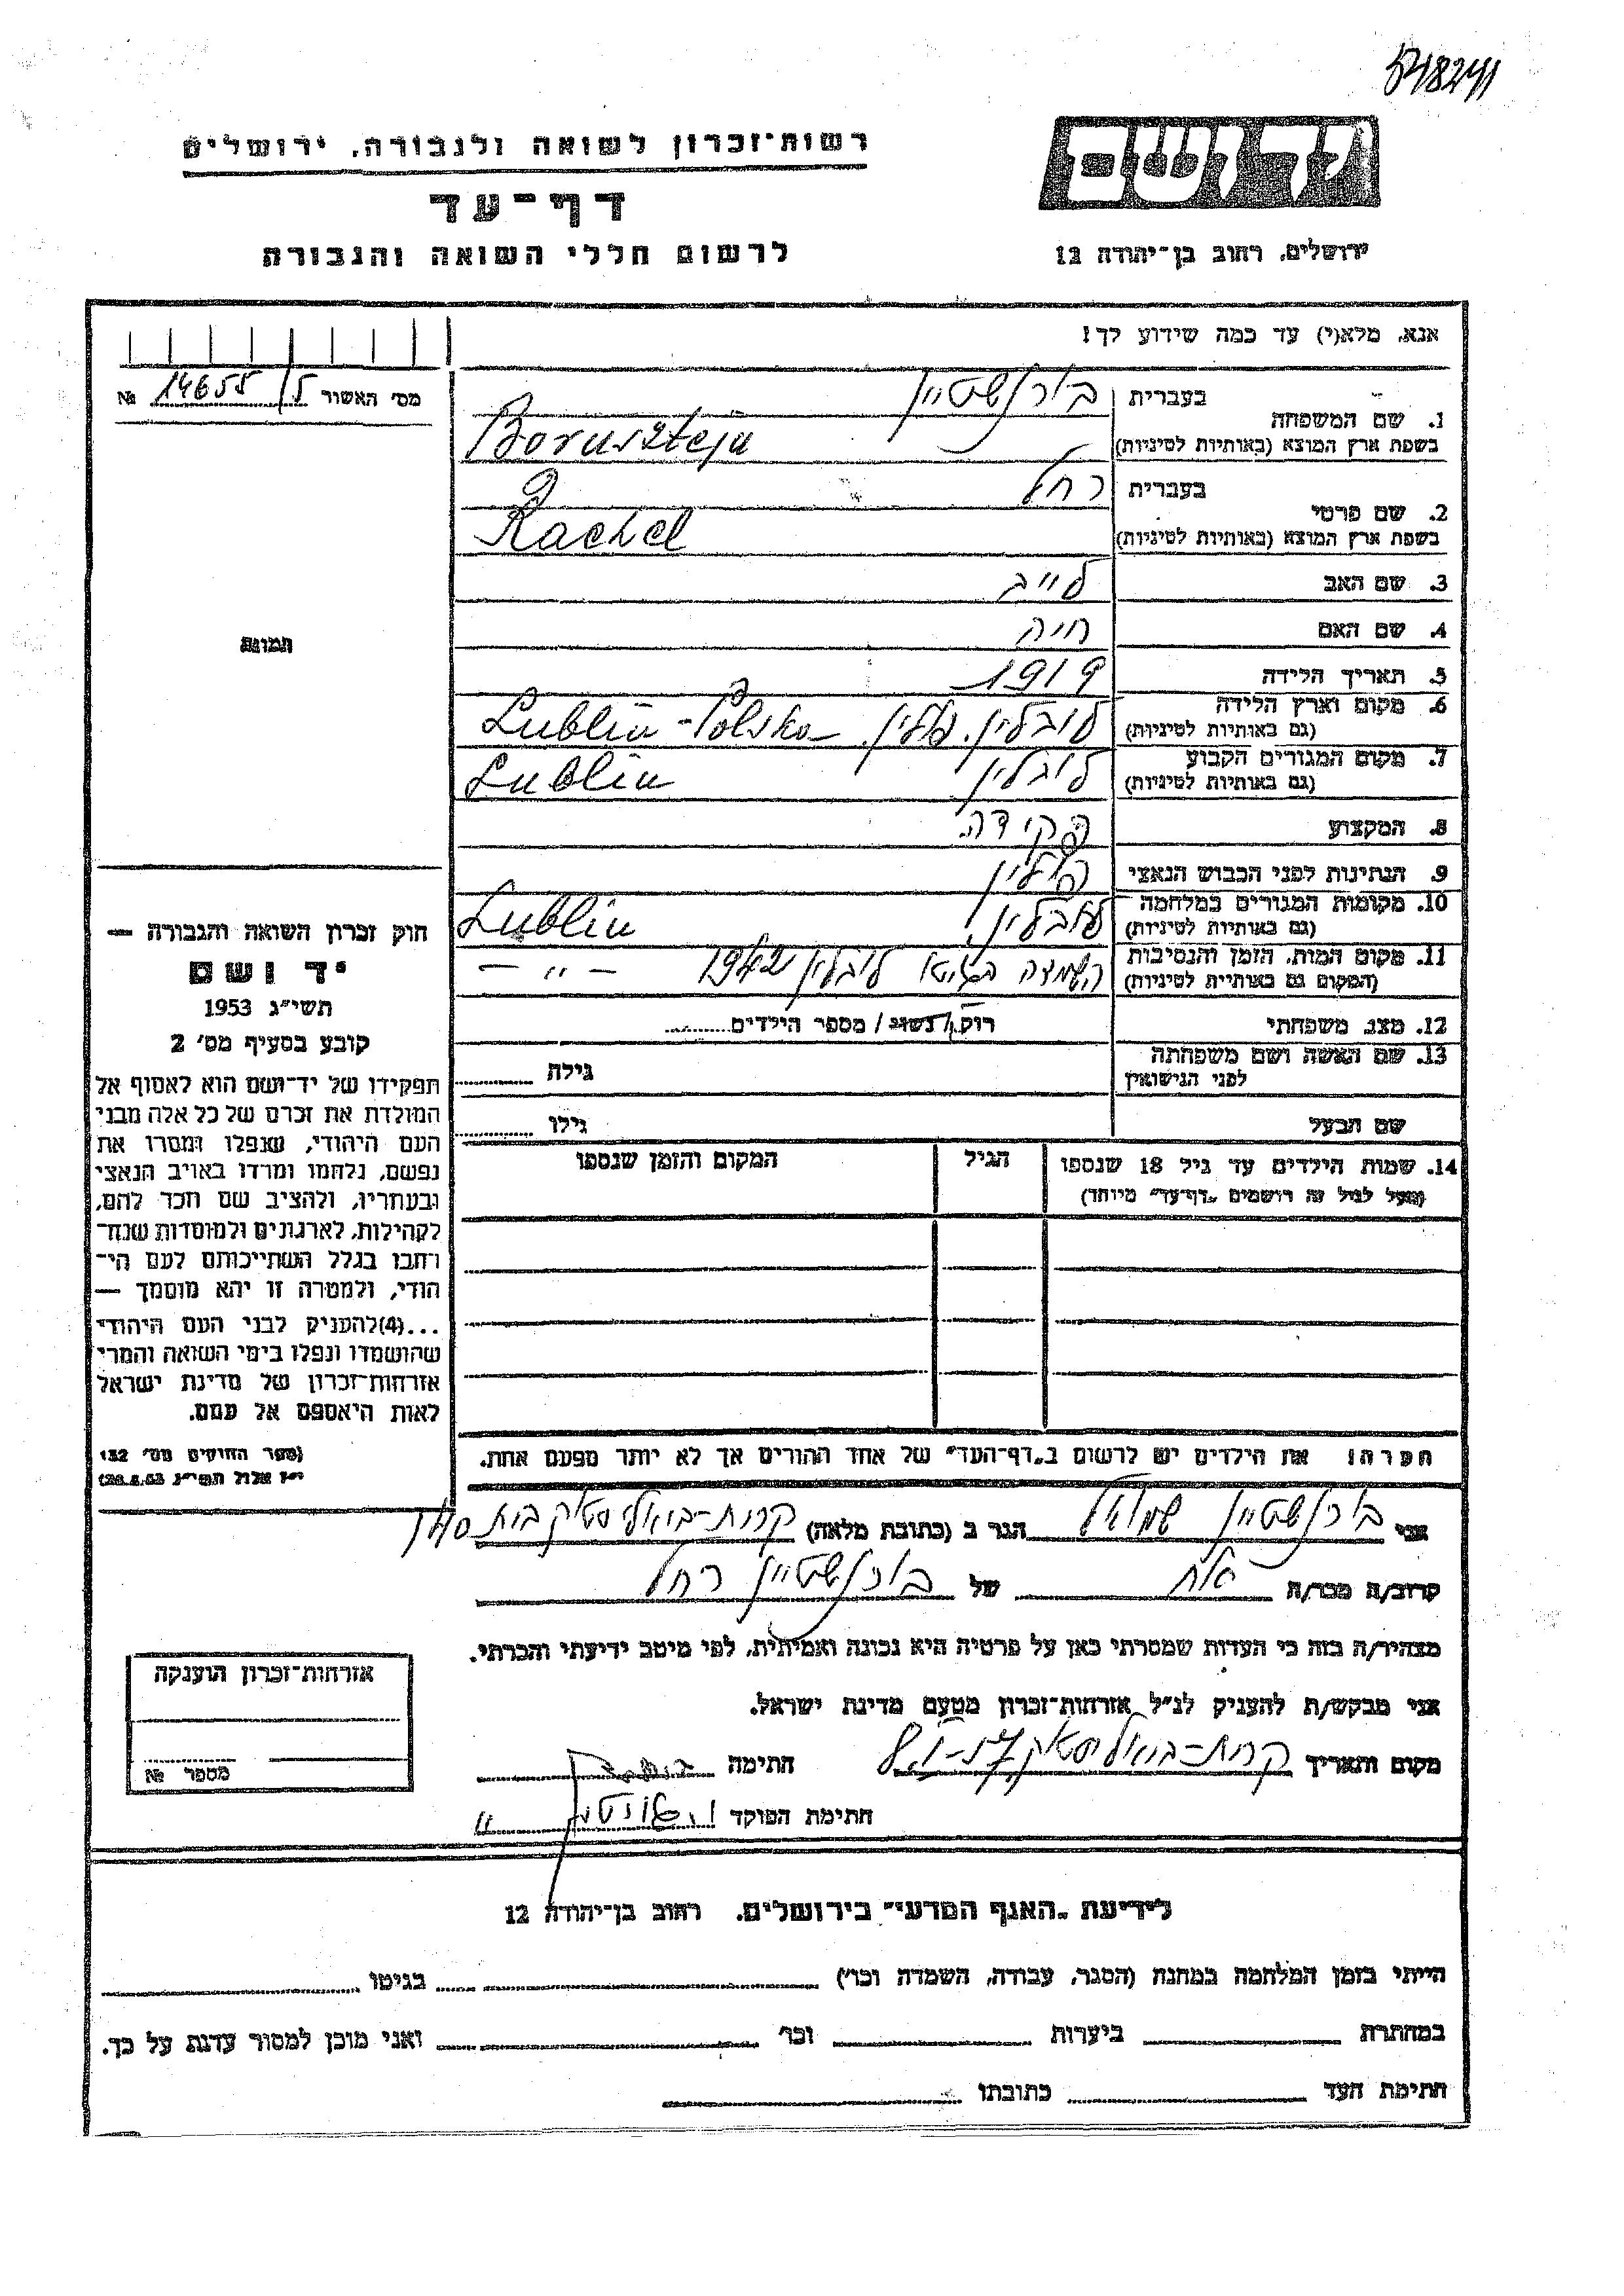 רשות־זכרון לשואה ולגבורה, ירושלים
דף־עד
לרשום חללי השואה והגבורה
יד ושם
ירושלים, רחוב בן־יהודה 12
אנא, מלא(י) עד כמה שידוע לך!
מס׳ האשור 14655/5 №
1. שם המשפחה
בעברית בורנשטיין
בשפת ארץ המוצא (באותיות לטיניות) Bornsztejn
2. שם פרטי
בעברית רחל
בשפת ארץ המוצא (באותיות לטיניות) Rachel
3. שם האב לייב
4. שם האם חיה
5. תאריך הלידה 1919
6. מקום וארץ הלידה לובלין, פולין. Lublin-Polska
(גם באותיות לטיניות)
7. מקום המגורים הקבוע לובלין Lublin
(גם באותיות לטיניות)
8. המקצוע פקידה.
9. הנתינות לפני הכבוש הנאצי פולין
10. מקומות המגורים במלחמה לובלין, Lublin
(גם באותיות לטיניות)
11. מקום המות, הזמן והנסיבות הושמדה בגיטו לובלין 1942 – " –
(המקום גם באותיות לטיניות)
12. מצב משפחתי רוק/נשוי/ מספר הילדים
13. שם האשה ושם משפחתה גילה
לפני הנישואין
שם הבעל גילו
14. שמות הילדים עד גיל 18 שנספו הגיל המקום והזמן שנספו
(מעל לגיל זה רושמים "דף־עד" מיוחד)
תמונה
חוק זכרון השואה והגבורה —
יד ושם
תשי״ג 1953
קובע בסעיף מס׳ 2
תפקידו של יד־ושם הוא לאסוף אל
המולדת את זכרם של כל אלה מבני
העם היהודי, שנפלו ומסרו את
נפשם, נלחמו ומרדו באויב הנאצי
ובעוזריו, ולהציב שם וזכר להם,
לקהילות, לארגונים ולמוסדות שנח־
רבו בגלל השתייכותם לעם הי־
הודי, ולמטרה זו יהא מוסמך —
...(4) להעניק לבני העם היהודי
שהושמדו ונפלו בימי השואה והמרי
אזרחות־זכרון של מדינת ישראל
לאות היאספם אל עמם.
(ספר החוקים מס׳ 132
י״ז אלול תשי״ג 28.8.53)
הערה! את הילדים יש לרשום ב"דף־העד" של אחד ההורים אך לא יותר מפעם אחת.
אני בורנשטיין שמואל הגר ב (כתובת מלאה) קרית-ביאליסטוק בית
קרוב/ה מכר/ה אח של בורנשטיין רחל
מצהיר/ה בזה כי העדות שמסרתי כאן על פרטיה היא נכונה ואמיתית, לפי מיטב ידיעתי והכרתי.
אני מבקש/ת להעניק לנ״ל אזרחות־זכרון מטעם מדינת ישראל.
מקום ותאריך קרית-ביאליסטוק חתימה
חתימת הפוקד
אזרחות־זכרון הוענקה
מספר №
לידיעת "האגף המדעי" בירושלים, רחוב בן־יהודה 12
הייתי בזמן המלחמה במחנה (הסגר, עבודה, השמדה וכו׳) בגיטו
במחתרת ביערות וכו׳ ואני מוכן למסור עדות על כך.
חתימת העד כתובתו